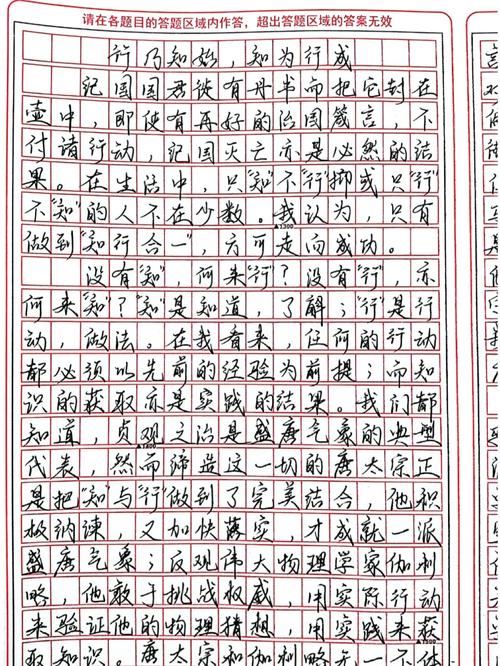 请在各题目的答题区域内作答，超出答题区域的答案无效
行乃知始，知为行成
纪国国君误有丹书而把它封在
壶中，即使有再好的治国箴言，不
付诸行动，纪国灭亡亦是必然的结
果。在生活中，只"知"不"行"抑或只"行"
不"知"的人不在少数。我认为，只有
▲1300
做到"知行合一"，方可走向成功。
没有"知"，何来"行"？没有"行"，亦
何来"知"？"知"是知道，了解；"行"是行
动，做法。在我看来，任何的行动
都必须以先前的经验为前提；而知
识的获取亦是实践的结果。我们都
知道，贞观之治是盛唐气象的典型
代表，然而缔造这一切的唐太宗正
是把"知"与"行"做到了完美结合，他积
极纳谏，又加快落实，才成就一派
盛唐气象；反观伟大物理学家伽利
略，他敢于挑战权威，用实际行动
来验证他的物理猜想，用实践来获
取知识。唐太宗和伽利略无一不体